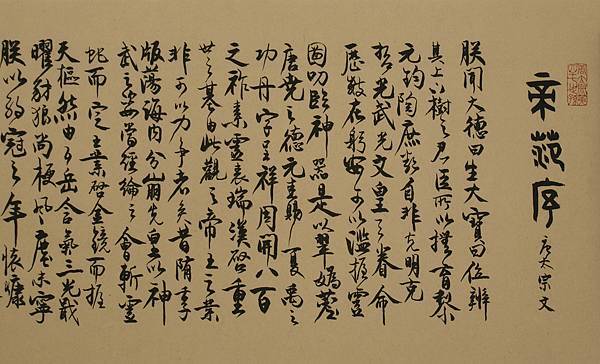 帝范序
唐太宗文
朕聞大德曰生大寶曰位辨
其上下樹之君臣所以撫育黎
元鈞陶庶類自非克明克
哲允武允文皇天眷命
歷數在躬安可以濫握靈
圖叨臨神器是以翠媯薦
唐堯之德元圭賜夏禹之
功丹字呈祥周開八百
之祚素靈表瑞漢啓重
世之基由此觀之帝王之業
非可以力爭者矣昔隋季
版蕩海内分崩先皇以神
武之姿當經綸之會斬靈
蛇而定王業啓金鏡而握
天樞然由五岳含氣三光戢
曜豺狼尚梗風塵未寧
朕以弱冠之年懷慷